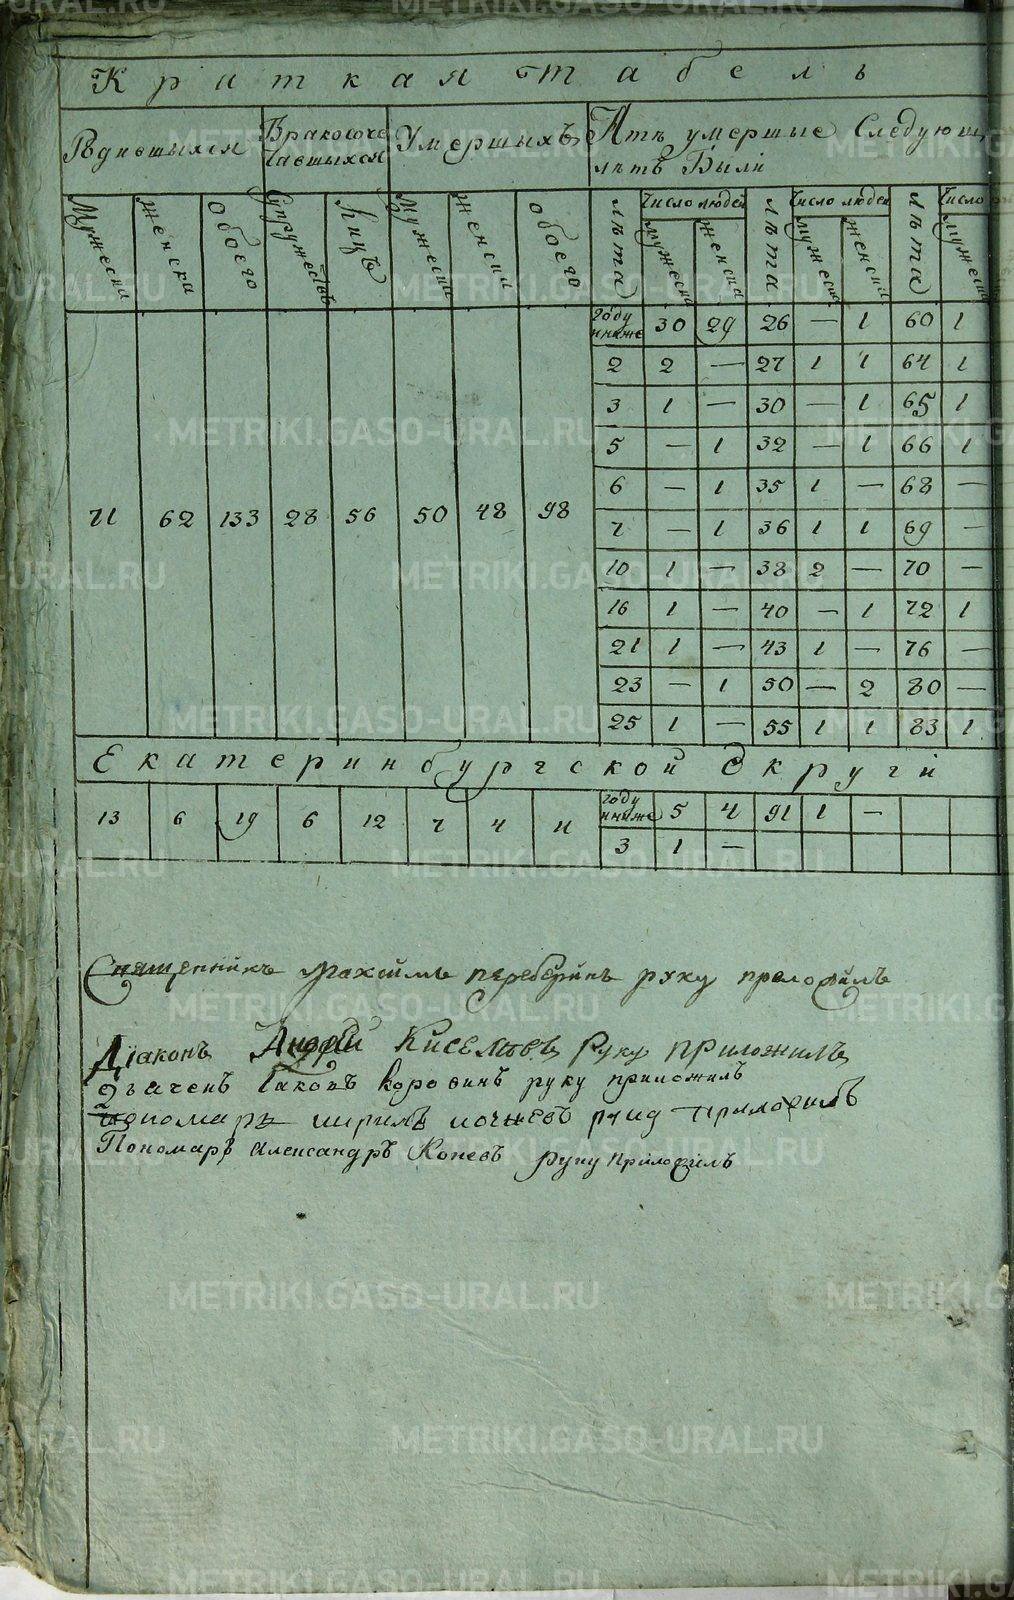 Краткая табель
Рѣдившихся Бракосоче Умершыхъ Атѣ умершые Следующ
тавшыхся лѣтъ Были
Мужеска женска обоего Супружествъ Лицъ Мужески женски обоего лѣта Число людей лѣта Число людей лѣта Число
мужеска женска мужески женски мужеска
году
и ниже 30 29 26 — 1 60 1
2 2 — 27 1 1 64 1
3 1 — 30 — 1 65 1
5 — 1 32 — 1 66 1
6 — 1 35 1 — 68 —
71 62 133 28 56 50 48 98 7 — 1 36 1 1 69 —
10 1 — 38 2 — 70 —
16 1 — 40 — 1 72 1
21 1 — 43 1 — 76 —
23 — 1 50 — 2 80 —
25 1 — 55 1 1 83 1
Екатеринбургской Округи
13 6 19 6 12 7 4 11 году
и ниже 5 4 91 1 —
3 1 —
Священникъ руку приложилъ
Діаконъ Андрей Киселевъ руку приложилъ
Дьячекъ Іаковъ Коровинъ руку приложилъ
Пономарь приложилъ
Пономарь Александръ Коневъ руку приложилъ
METRIKI.GASO-URAL.RU